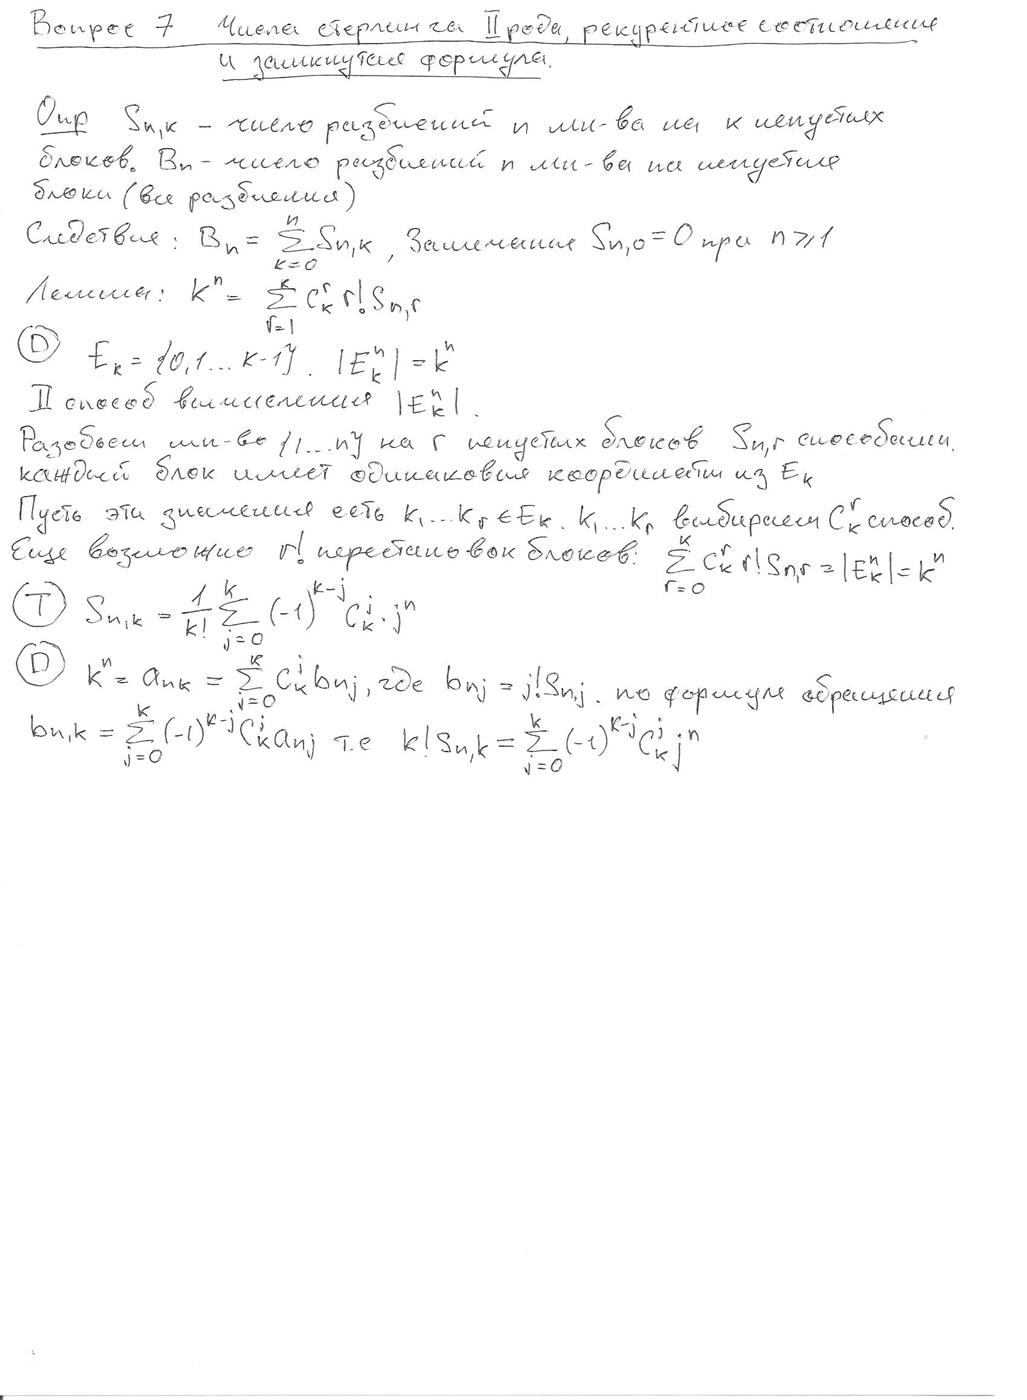 Вопрос 7 Числа стерлинга II рода, рекурентное соотношение
и замкнутая формула.
Опр Sn,к – число разбиений n мн-ва на к непустых
блоков. Bn – число разбиений n мн-ва на непустые
блоки (все разбиения)
Следствие: Bₙ = ∑_{k=0}^{n} Sn,k, Замечание Sn,0 = 0 при n ≥ 1
Лемма: kⁿ = ∑_{r=1}^{k} C_k^r r! Sn,r
(D) Eₖ = {0,1...k-1}. |E_k^n| = kⁿ
II способ вычисления |E_k^n|.
Разобьем мн-во {1...n} на r непустых блоков Sn,r способами.
каждый блок имеет одинаковые координаты из Eₖ
Пусть эти значения есть k₁...kᵣ ∈ Eₖ. k₁...kᵣ выбираем C_k^r способ.
Еще возможно r! перестановок блоков: ∑_{r=0}^{k} C_k^r r! Sn,r = |E_k^n| = kⁿ
(T) Sn,k = 1/k! ∑_{j=0}^{k} (-1)^{k-j} C_k^j · jⁿ
(D) kⁿ = a_{nk} = ∑_{j=0}^{k} C_k^j b_{nj}, где b_{nj} = j! Sn,j. по формуле обращения
b_{n,k} = ∑_{j=0}^{k} (-1)^{k-j} C_k^j a_{nj} т.е k! Sn,k = ∑_{j=0}^{k} (-1)^{k-j} C_k^j jⁿ